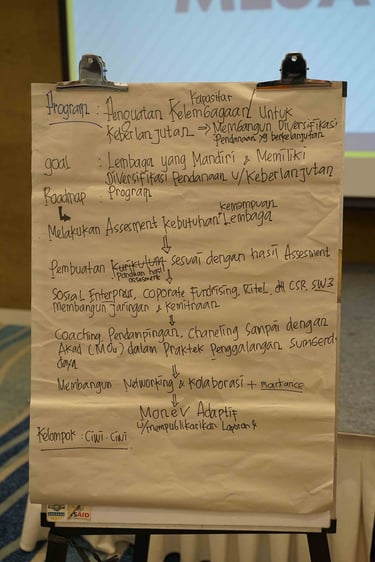 Kapasitas
Program : Penguatan Kelembagaan Untuk
Keberlanjutan → Membangun Diversifikasi
Pendanaan yg berkelanjutan
goal : Lembaga yang Mandiri & Memiliki
Diversifikasi Pendanaan U/Keberlanjutan
Roadmap Program
kemampuan
Melakukan Assesment kebutuhan Lembaga
Pembuatan Kurikulum sesuai dengan hasil Assesment
assesment
Sosial Enterpraus, Coporate Fundrising, Ritel, dll CSR, SW3
membangun jaringan & kemitraan
Coaching, Pendampingan, Chaneling Sampai dengan
Akad (MOU) dalam Praktek Penggalangan Sumberd
daya
Membangun Networking & Kolaborasi +
Monev Adaptif
U/mempublikasikan Laporan &
Kelompok : Ciwi-Ciwi
USAID